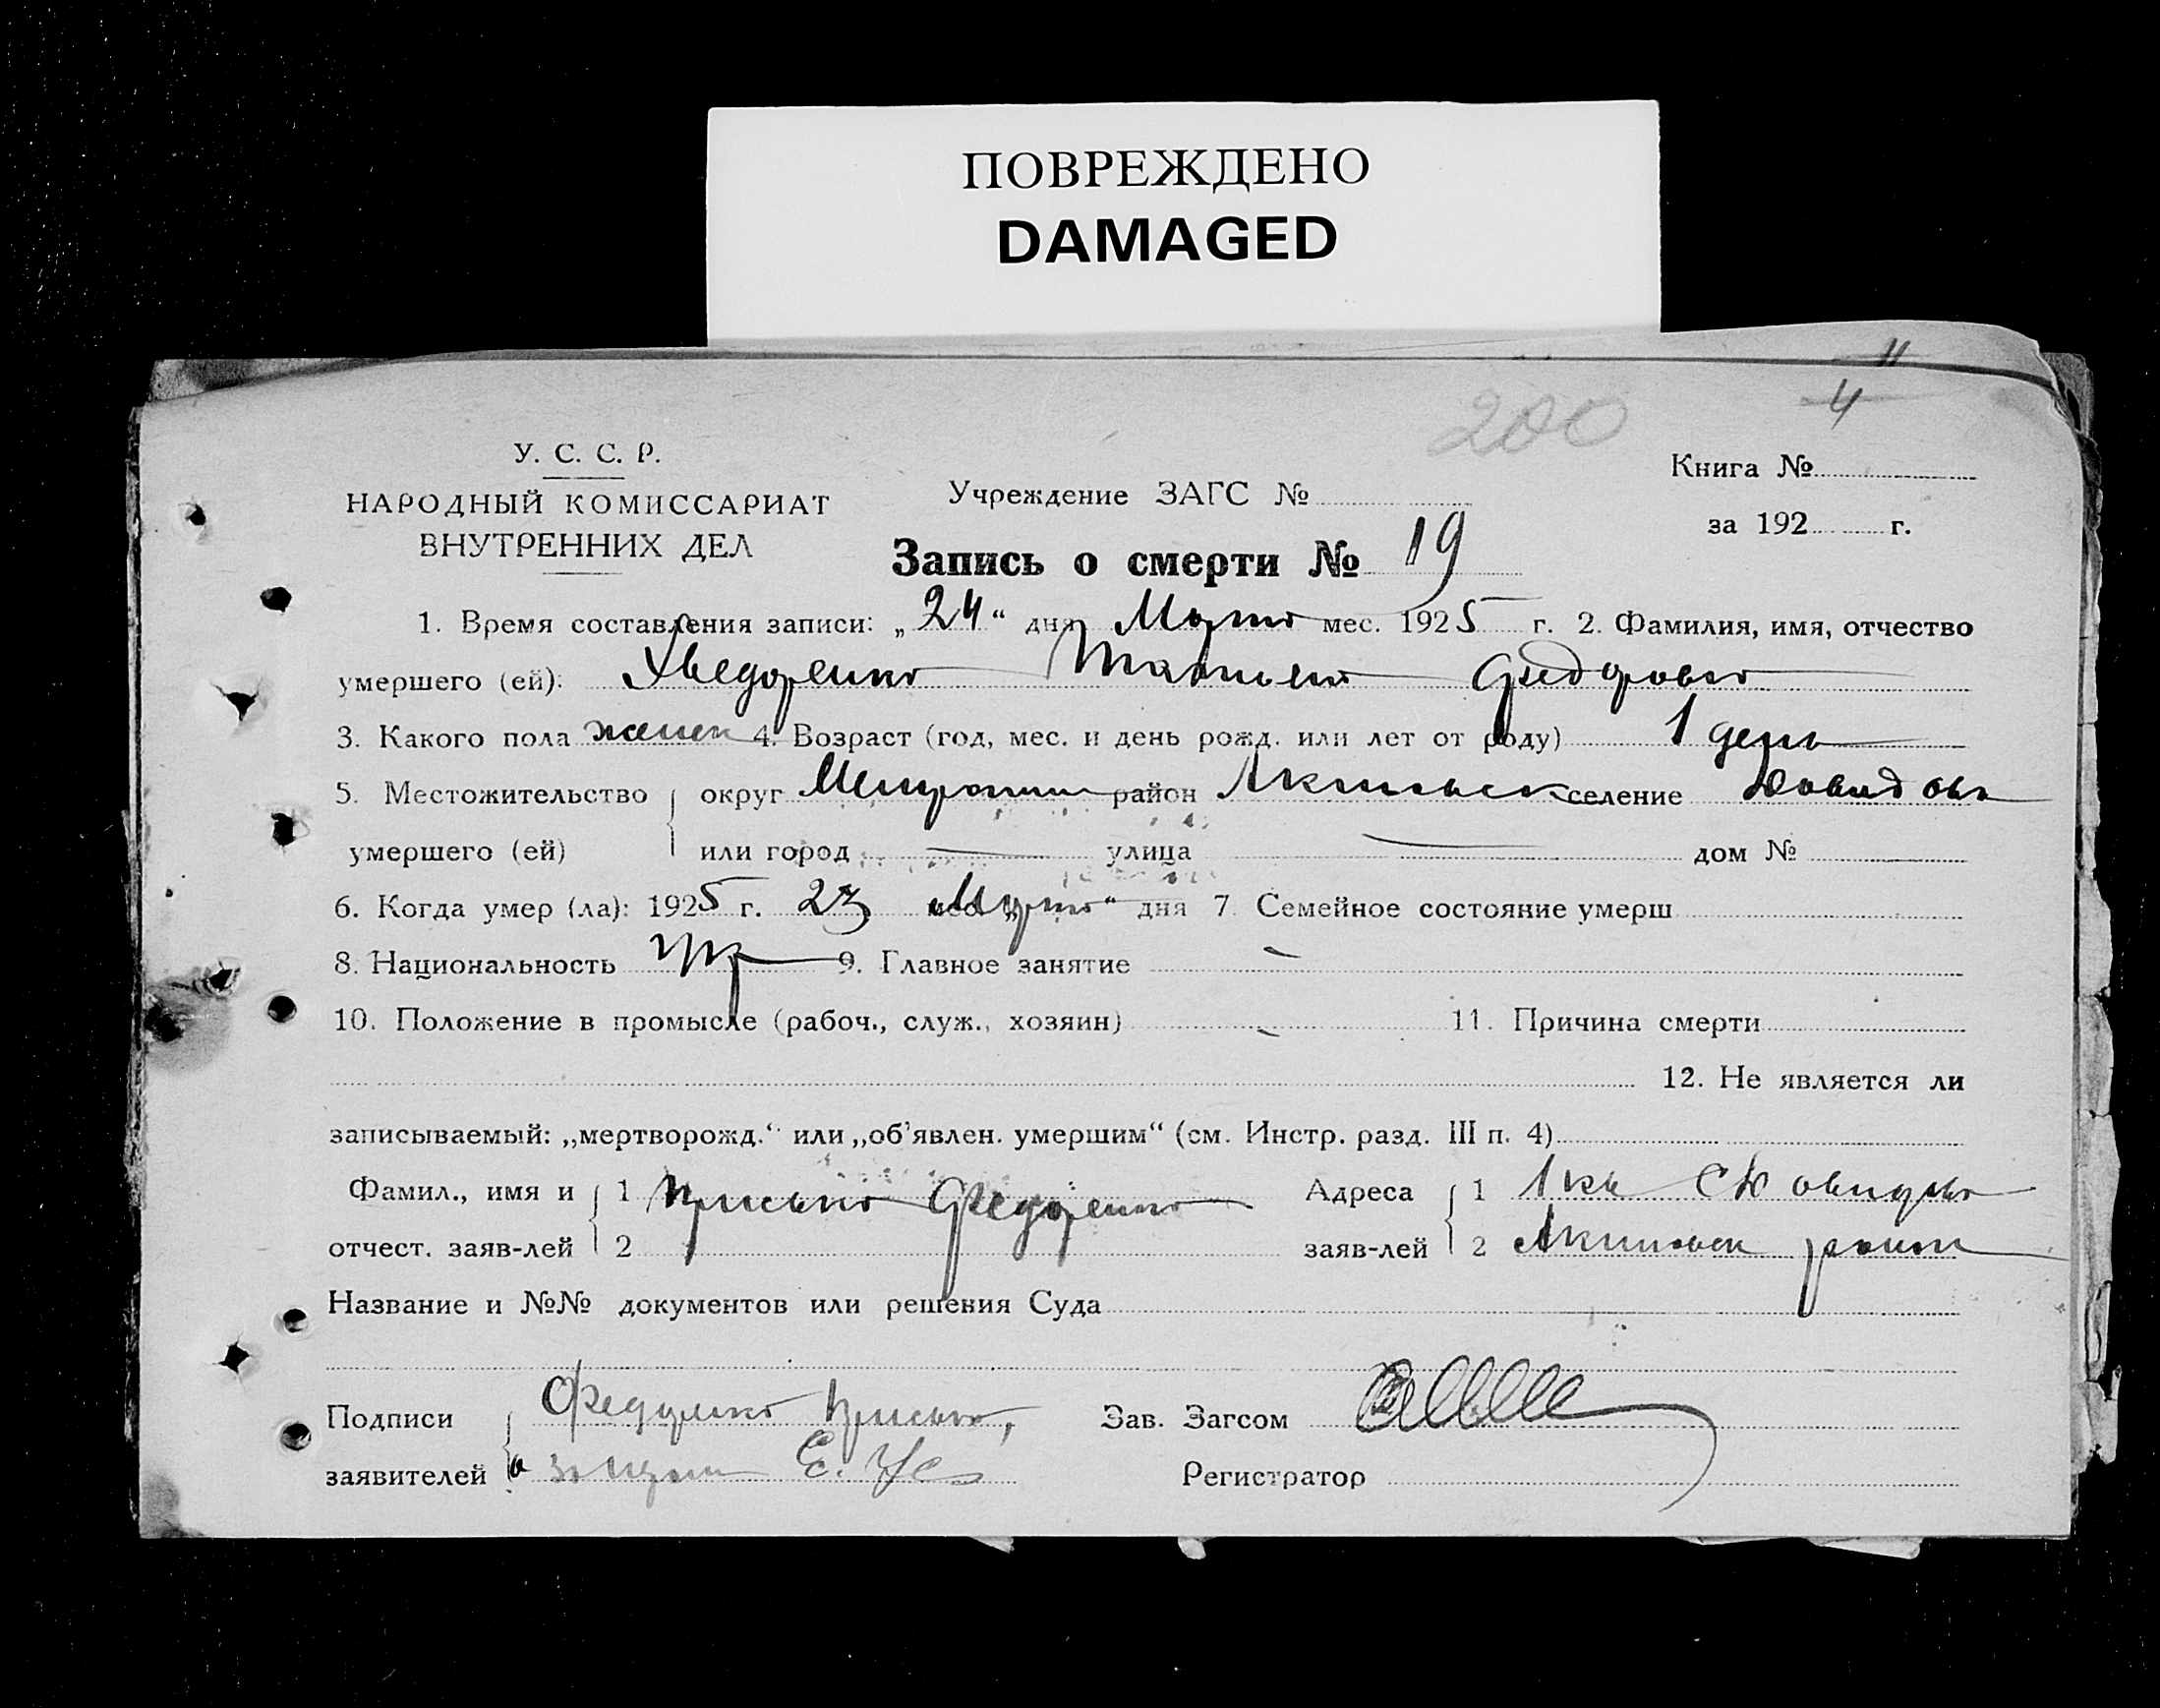 ПОВРЕЖДЕНО
DAMAGED
11
4
200
У. С. С. Р.
НАРОДНЫЙ КОМИССАРИАТ
ВНУТРЕННИХ ДЕЛ
Учреждение ЗАГС №
Книга №
за 192 г.
Запись о смерти № 19
1. Время составления записи: „24“ дня Марта мес. 1925 г. 2. Фамилия, имя, отчество
умершего (ей): Хведоренко Татьяна Федоровна
3. Какого пола женск 4. Возраст (год, мес. и день рожд. или лет от роду) 1 день
5. Местожительство округ район селение
умершего (ей) или город — улица — дом №
6. Когда умер (ла): 1925 г. 23 мес. „Марта“ дня 7. Семейное состояние умерш
8. Национальность укр 9. Главное занятие –
10. Положение в промысле (рабоч., служ., хозяин) – 11. Причина смерти
12. Не является ли
записываемый: „мертворожд.“ или „об'явлен. умершим“ (см. Инстр. разд. III п. 4)
Фамил., имя и 1 Федоренко Адреса 1
отчест. заяв-лей 2 заяв-лей 2 район
Название и №№ документов или решения Суда
Подписи Федоренко Зав. Загсом
заявителей Регистратор